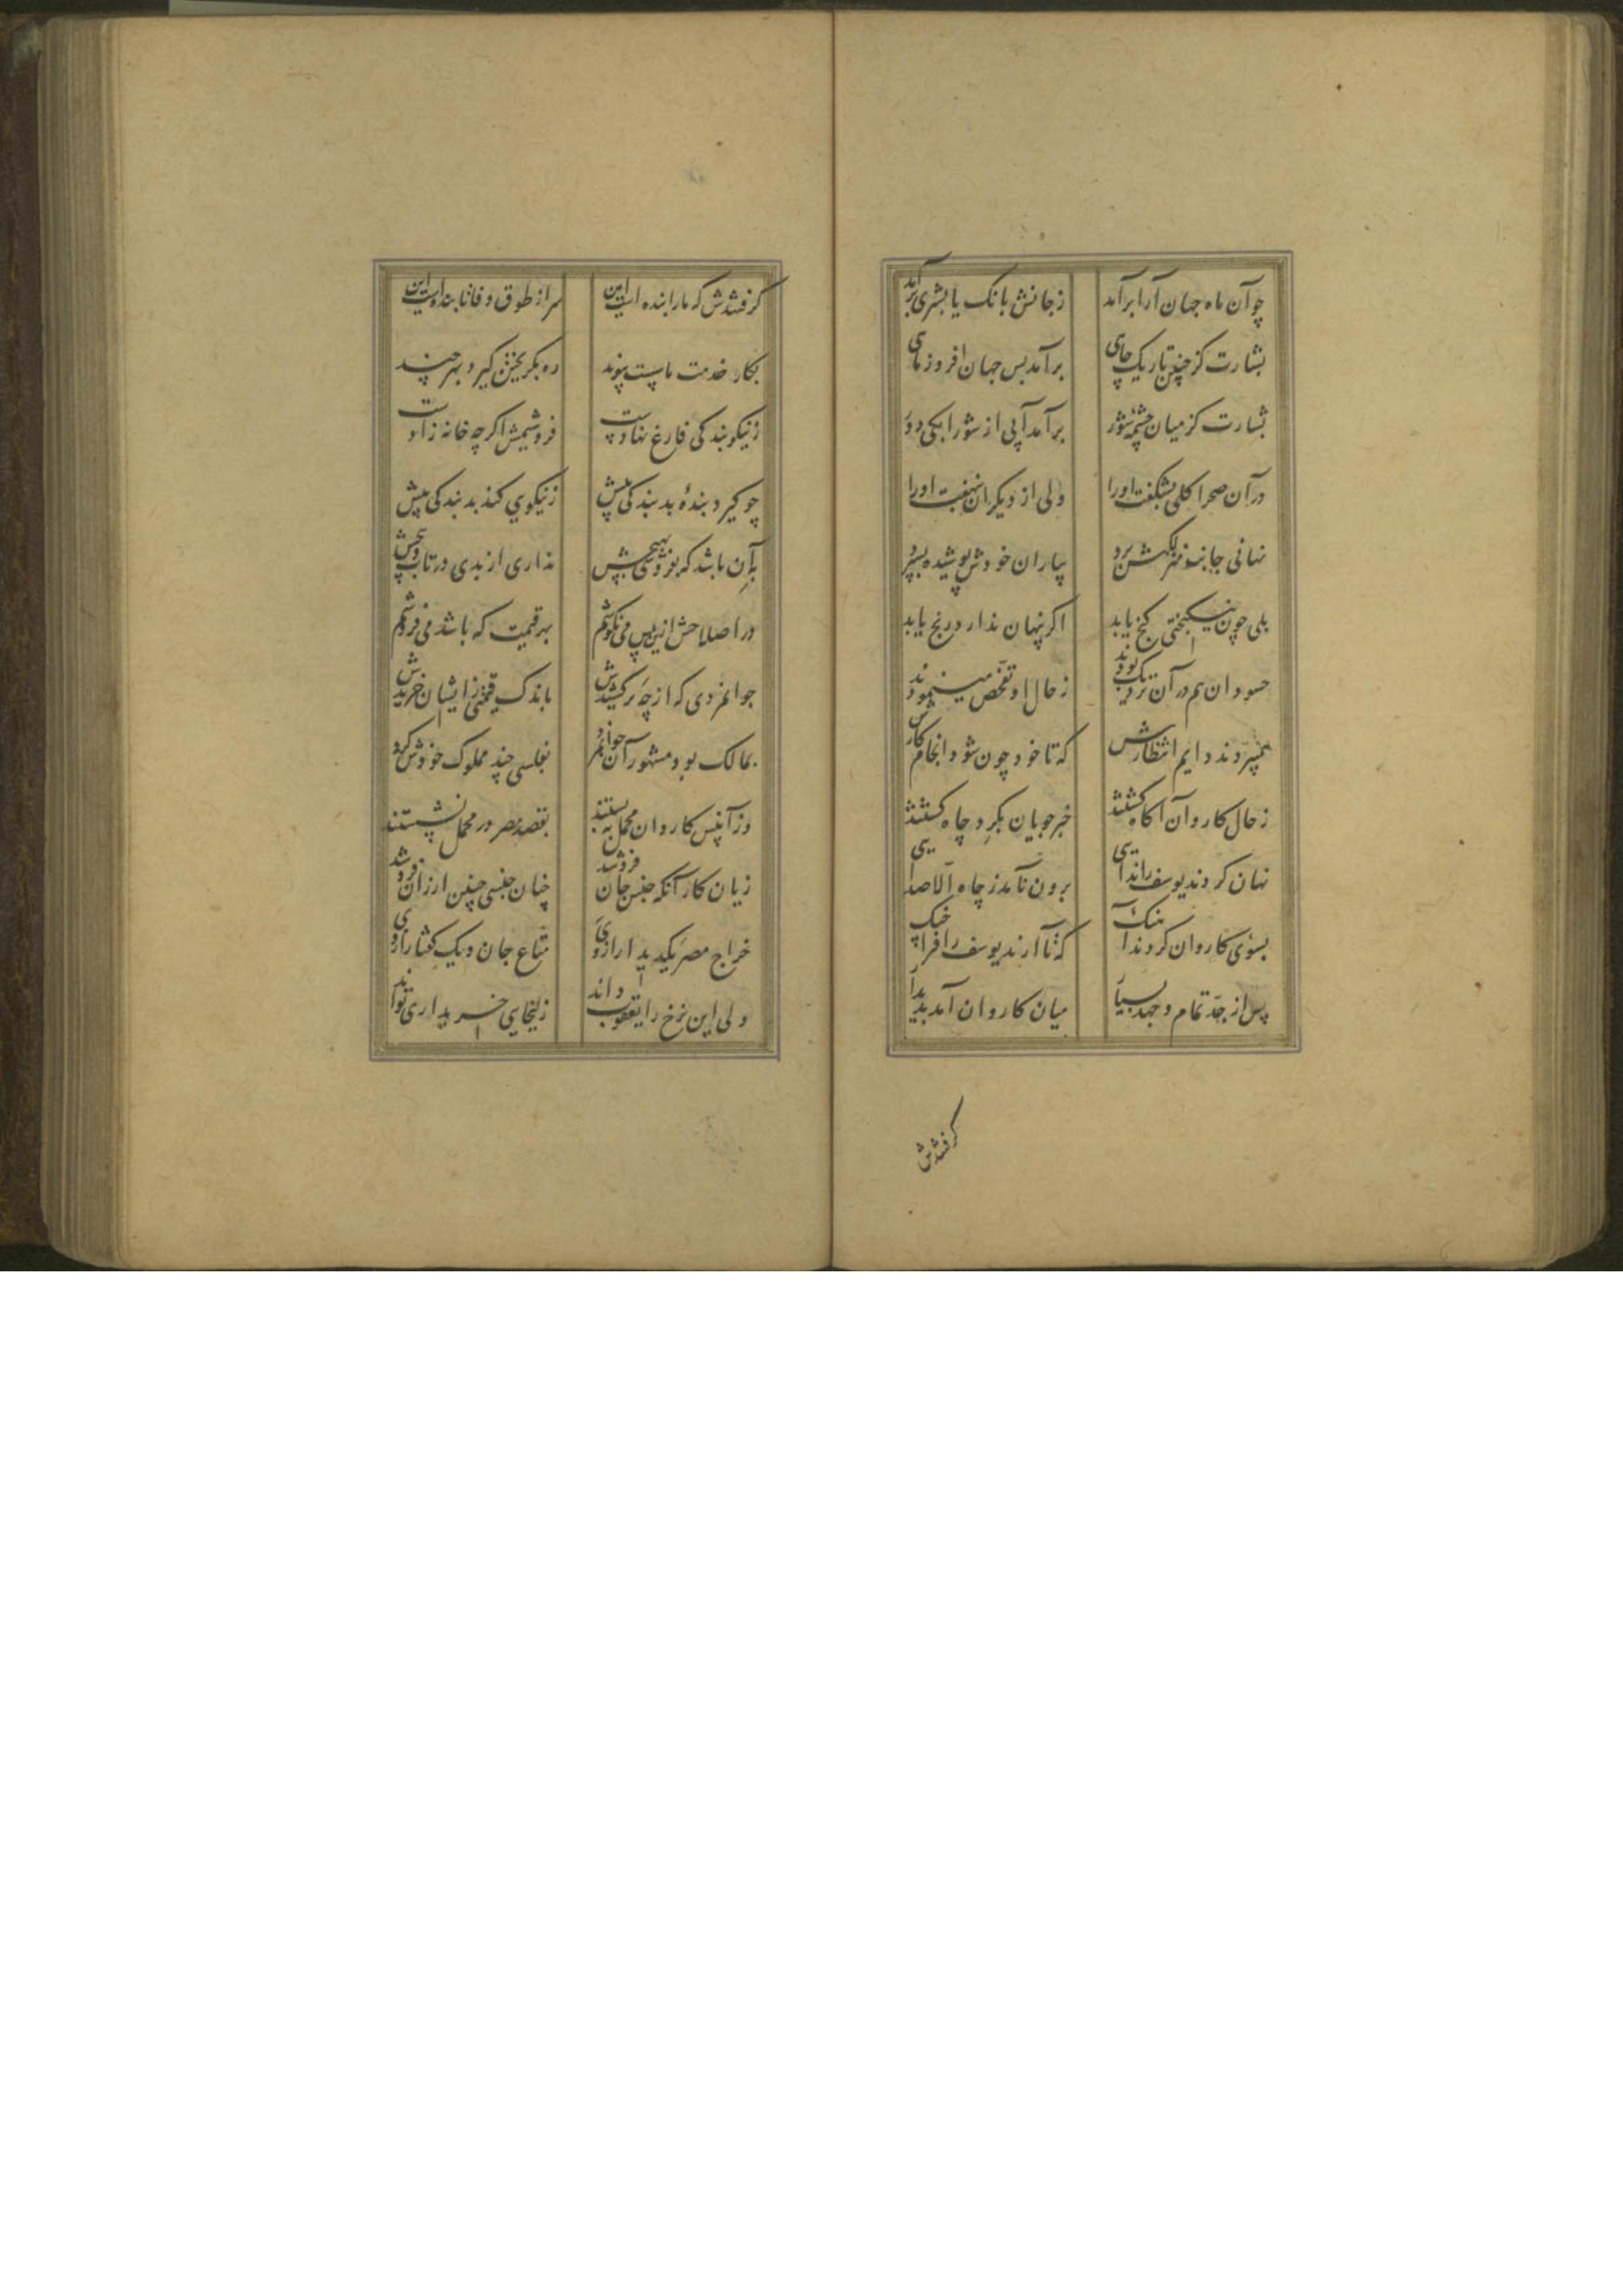 چو آن ماه جهان آرا برآمد زجانش بانک یا بشری برآمد
بشارت کز چنین تاریک چاهی برآمد بس جهان افروز ماهی
بشارت کز میان چشمهٔ شور برآمد آبی از شورابکی دور
در آن صحرا کلی بشکفت اورا ولی از دیکران بنهفت اورا
نهانی جانب منزلکهش برد بیاران خودش پوشیده بسپرد
بلی چون نیکبختی کنج یابد اکر پنهان ندارد رنج یابد
حسودان هم در آن نزدیک بودند زحال او تفحص مینمودند
همیبردند دایم انتظارش که تا خود چون شود انجام کارش
زحال کاروان آکاه کشتند خبرجویان بکرد چاه کشتند
نهان کردند یوسف را ندایی برون نامد زچاه الا صدایی
بسوی کاروان کردند آهنک که تا آرند یوسف را فراچنک
پس از جد تمام و جهد بسیار میان کاروان آمد پدیدار
کرفتندش
کرفتندش که مارا بنده است این سر از طوق وفا تابنده است این
بکار خدمت ما سست پیوند ره بکریختن کیرد بهر چند
زنیکو بندکی فارغ نهادست فروشیمش اکرچه خانه زادست
چو کیرد بندهٔ بد بندکی پیش زنیکویی کند بد بندکی بیش
به آن باشد که بفروشی بهیچش نداری از بدی در تاب و پیچش
در اصلاحش ازین پس می نکوشم بهر قیمت که باشد می فروشم
جوانمردی که از چه برکشیدش باندک قیمتی زایشان خریدش
بمالک بود مشهور آن جوانمرد بفلسی چند مملوک خودش کرد
وز آنپس کاروان محمل به بستند بقصد مصر در محمل نشستند
زیان کار آنکه جنس جان فروشد چنان جنسی چنین ارزان فروشد
خراج مصر یکدیدار از وی متاع جان و یک کفتار از وی
ولی این نرخ را یعقوب داند زلیخایی خریداری تواند